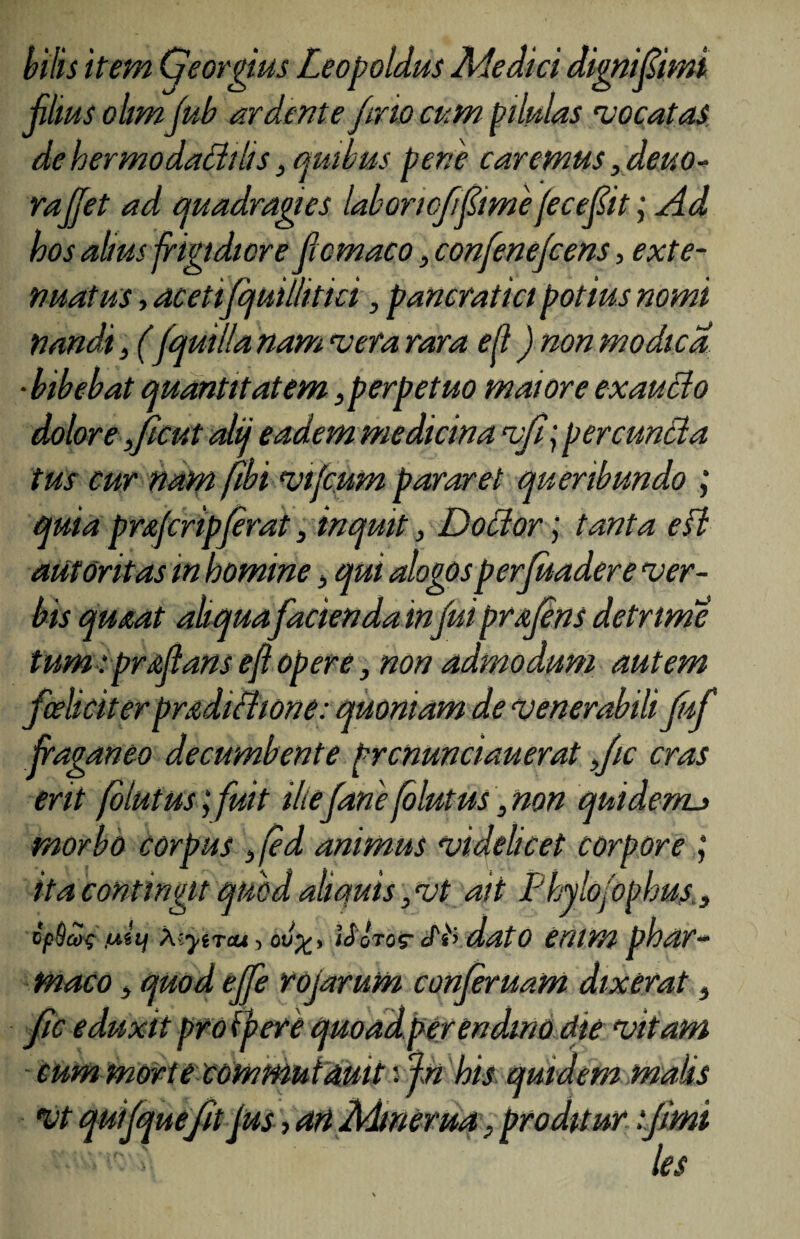 bilis item Georgius Leopoldus Medici dignißimi
filius olim ſub ardente ſirio cum pilulas vocatas
de hermodactilis, quibus penè caremus, deuo-
raſſet ad quadragies laborioſißimè ſeceßit; Ad
hos alius frigidiore ſtomaco, conſeneſcens, exte-
nuatus, aceti ſquillitici, pancratici potius nomi
nandi, (ſquilla nam vera rara eſt) non modicã
bibebat quantitatem, perpetuo maiore exaucto
dolore, ſicut alij eadem medicina vſi; percuncta
tus cur nam ſibi viſcum pararet queribundo;
quia præſcripſerat, inquit, Doctor; tanta eſt
autoritas in homine, qui alogos perſuadere ver-
bis quæat aliqua facienda in ſui præſens detrimẽ
tum: præſtans eſt opere, non admodum autem
fœliciter prædictione: quoniam de venerabili ſuf
fraganeo decumbente prenunciauerat, ſic cras
erit ſolutus; fuit ille ſanè ſolutus, non quidem
morbo corpus, ſed animus videlicet corpore;
ita contingit quòd aliquis, vt ait Phyloſophus,
ὀρθῶς μὲν λέγεται, οὐχ, dato enim phar-
maco, quod eſſe roſarum conſeruam dixerat,
ſic eduxit proſperè quoad perendino die vitam
cum morte commutauit: Jn his quidem malis
vt quiſque ſit ſus, an Minerua, proditur: ſimi
les